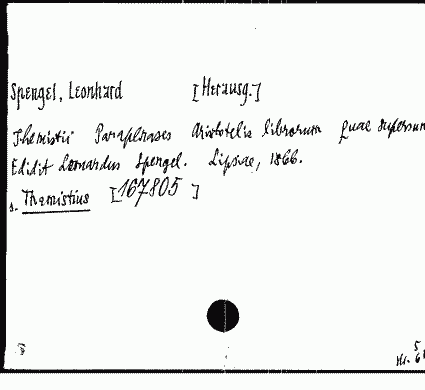 Spengel, Leonhard [Herausg.]
Themistii Paraphrases Aristotelis librorum quae supersun
Edidit Leonardus Spengel. Lipsiae, 1866.
s. Themistius [167805]
5